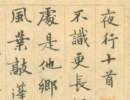 夜行十首
不識更長
處是他鄉
風葉敲蓬